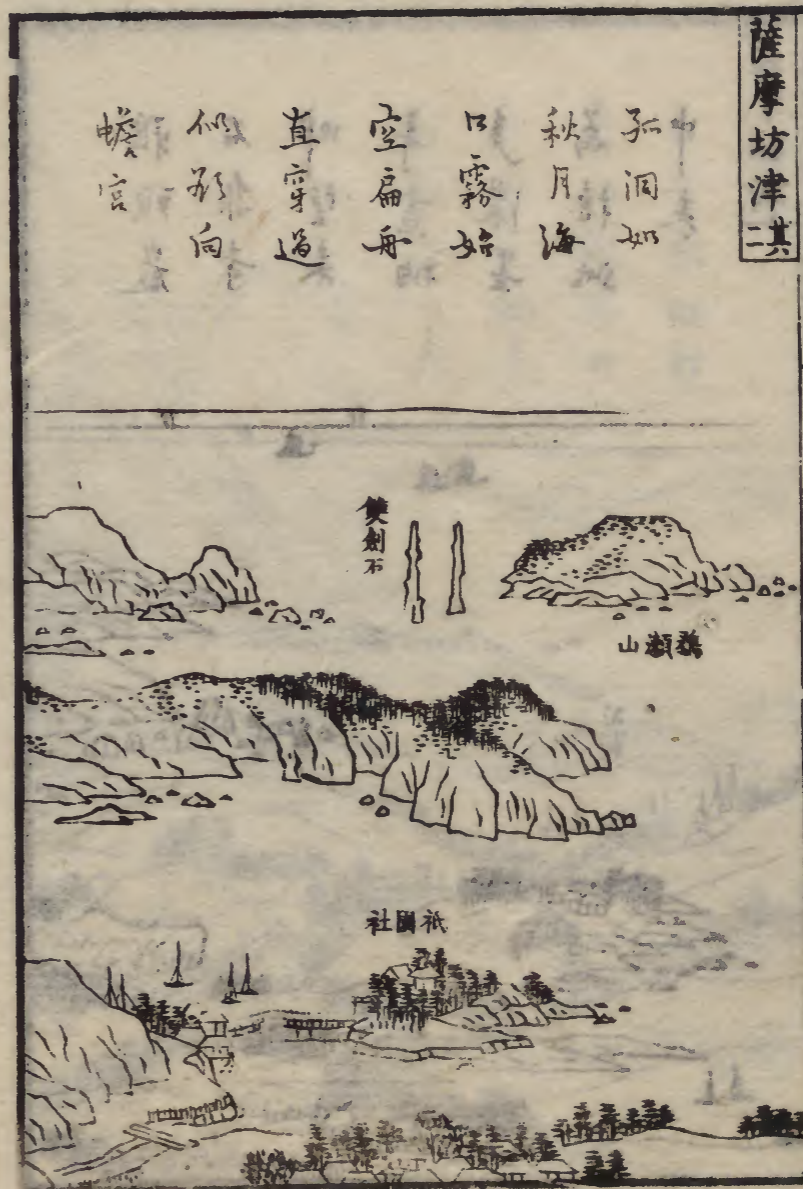 薩摩坊津其二
孤洞如
秋月海
口霧始
空扁舟
直穿過
似欲向
蟾宮
雙劍石
鵜瀬山
祇園社